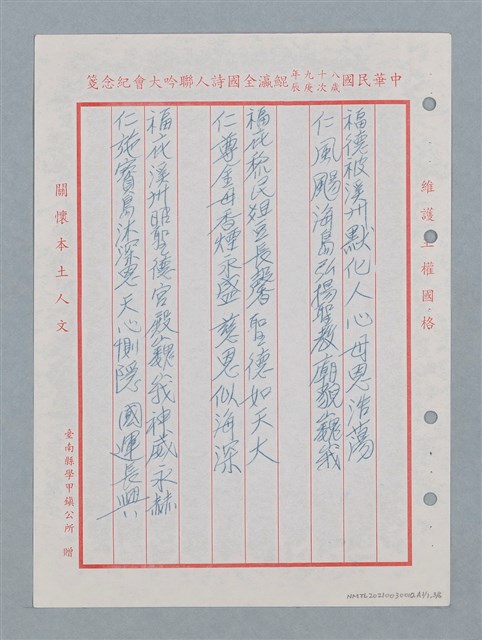 中華民國八十九年歲次庚辰鯤瀛全國詩人聯吟大會紀念箋
維護主權國格
福德被溪州默化人心母恩浩蕩
仁風颺海島弘揚聖教廟貌巍峩
福庇黎民俎豆長馨聖德如天大
仁尊金母香煙永盛慈恩似海深
福庇溪州昭聖德宮殿巍峩神威永赫
仁施寶島沐深恩天心惻隱國運長興
關懷本土人文
臺南縣學甲鎮公所 贈